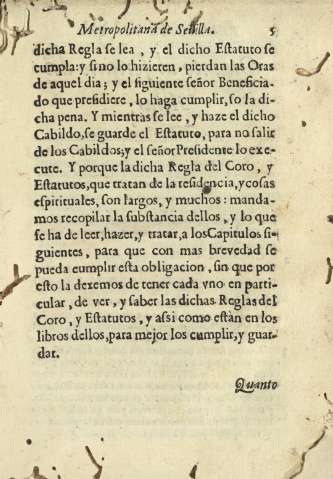 Metropolitana de Seuilla. 5
dicha Regla se lea, y el dicho Estatuto se
cumpla: y si no lo hizieren, pierdan las Oras
de aquel dia; y el siguiente señor Beneficia-
do que presidiere, lo haga cumplir, so la di-
cha pena. Y mientras se lee, y haze el dicho
Cabildo, se guarde el Estatuto, para no salir
de los Cabildos; y el señor Presidente lo exe-
cute. Y porque la dicha Regla del Coro, y
Estatutos, que tratan de la residencia, y cosas
espirituales, son largos, y muchos: manda-
mos recopilar la substancia dellos, y lo que
se ha de leer, hazer, y tratar, a los Capitulos si-
guientes, para que con mas brevedad se
pueda cumplir esta obligacion, sin que por
esto la dexemos de tener cada vno en parti-
cular, de ver, y saber las dichas Reglas del
Coro, y Estatutos, y assi como estàn en los
libros dellos, para mejor los cumplir, y guar-
dar.
Quanto